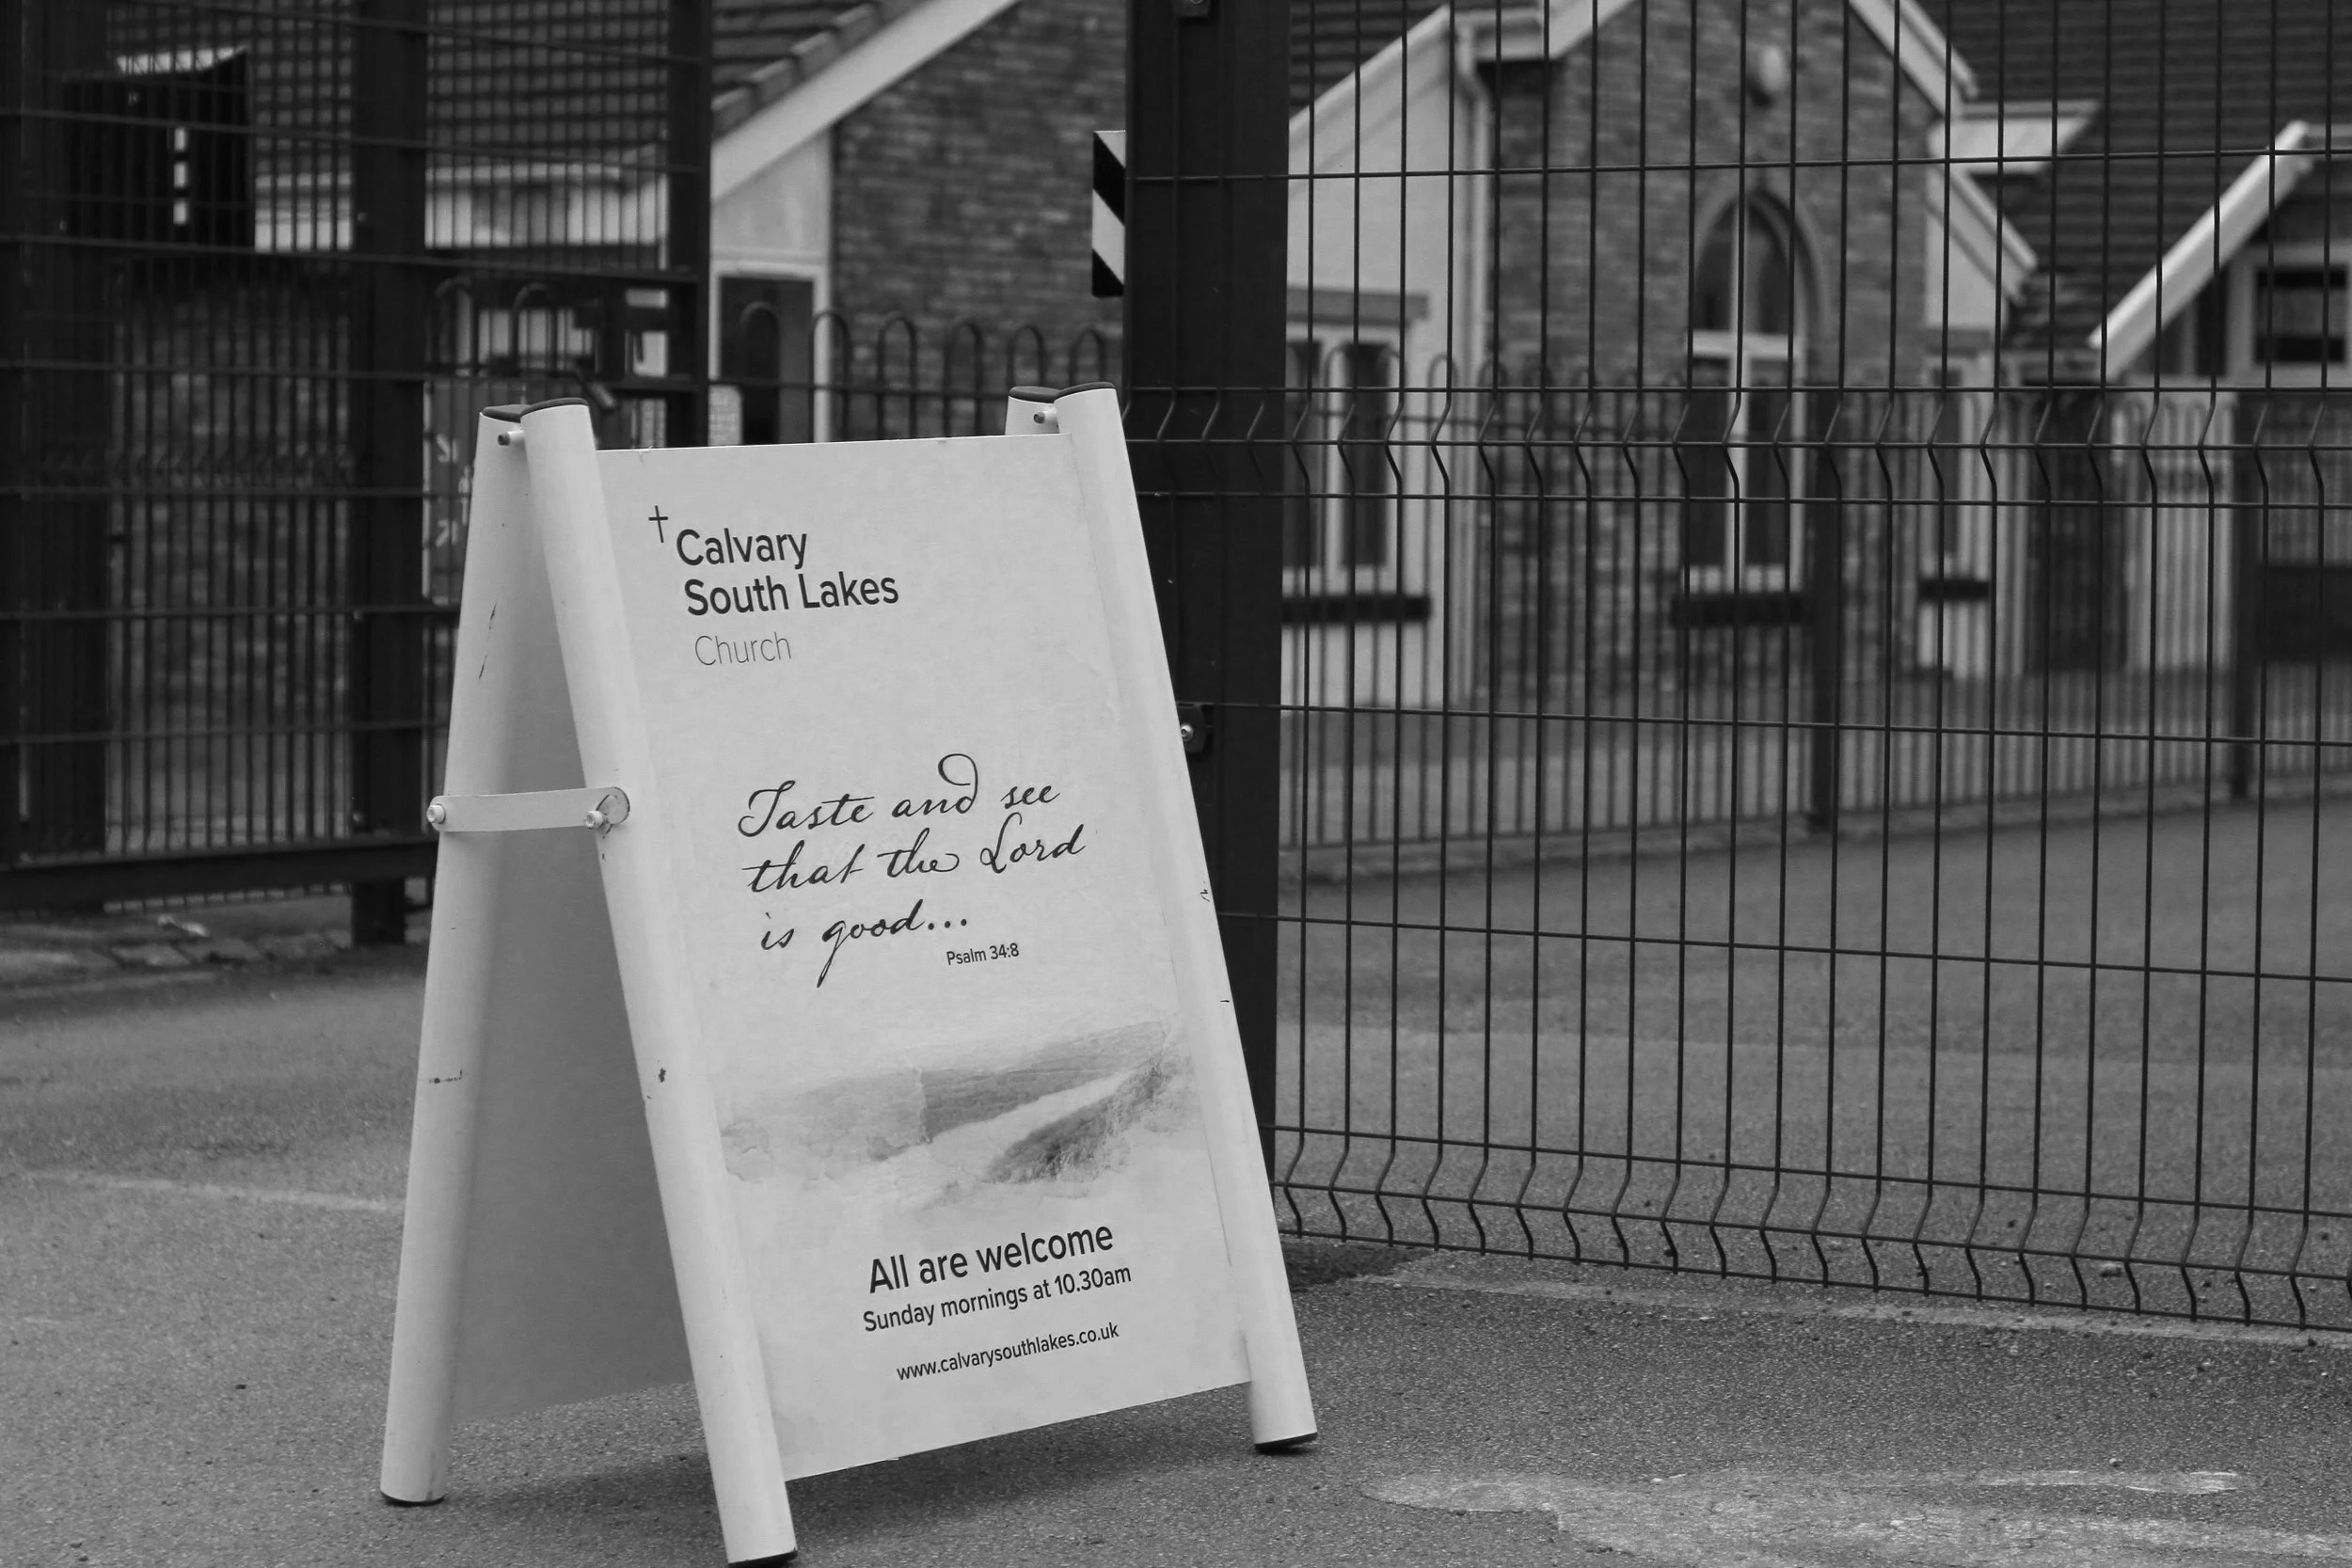 Calvary
South Lakes
Church
Taste and see
that the Lord
is good...
Psalm 34:8
All are welcome
Sunday mornings at 10.30am
www.calvarysouthlakes.co.uk